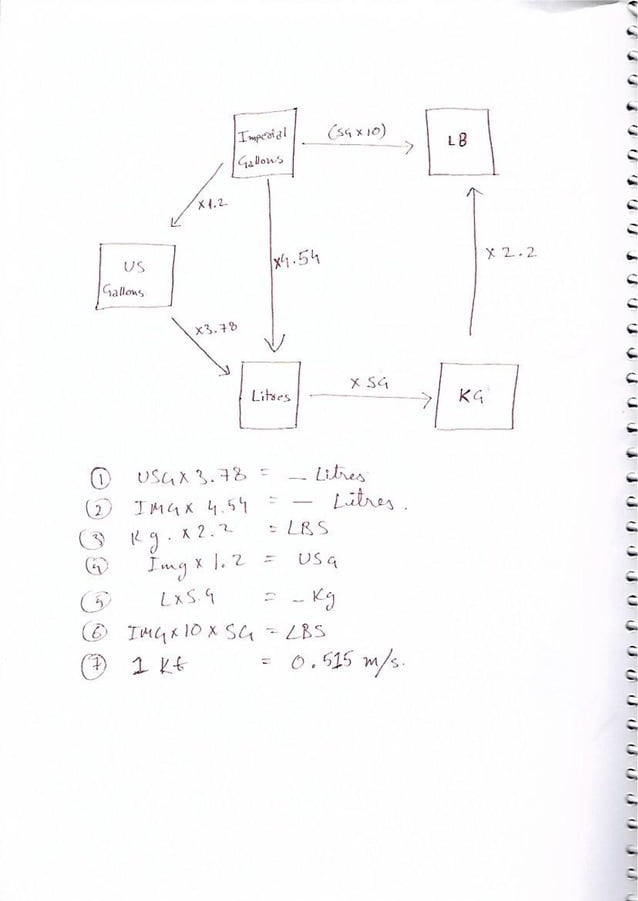 Imperial
Gallons
(SG x 10)
LB
x1.2
US
Gallons
x4.54
x 2.2
x3.78
Litres
x SG
KG
① USG x 3.78 = — Litres
② IMG x 4.54 = — Litres.
③ Kg. x 2.2 = LBS
④ Img x 1.2 = USG
⑤ L x S.G = - Kg
⑥ IMG x 10 x SG = LBS
⑦ 1 Kt = 0.515 m/s.